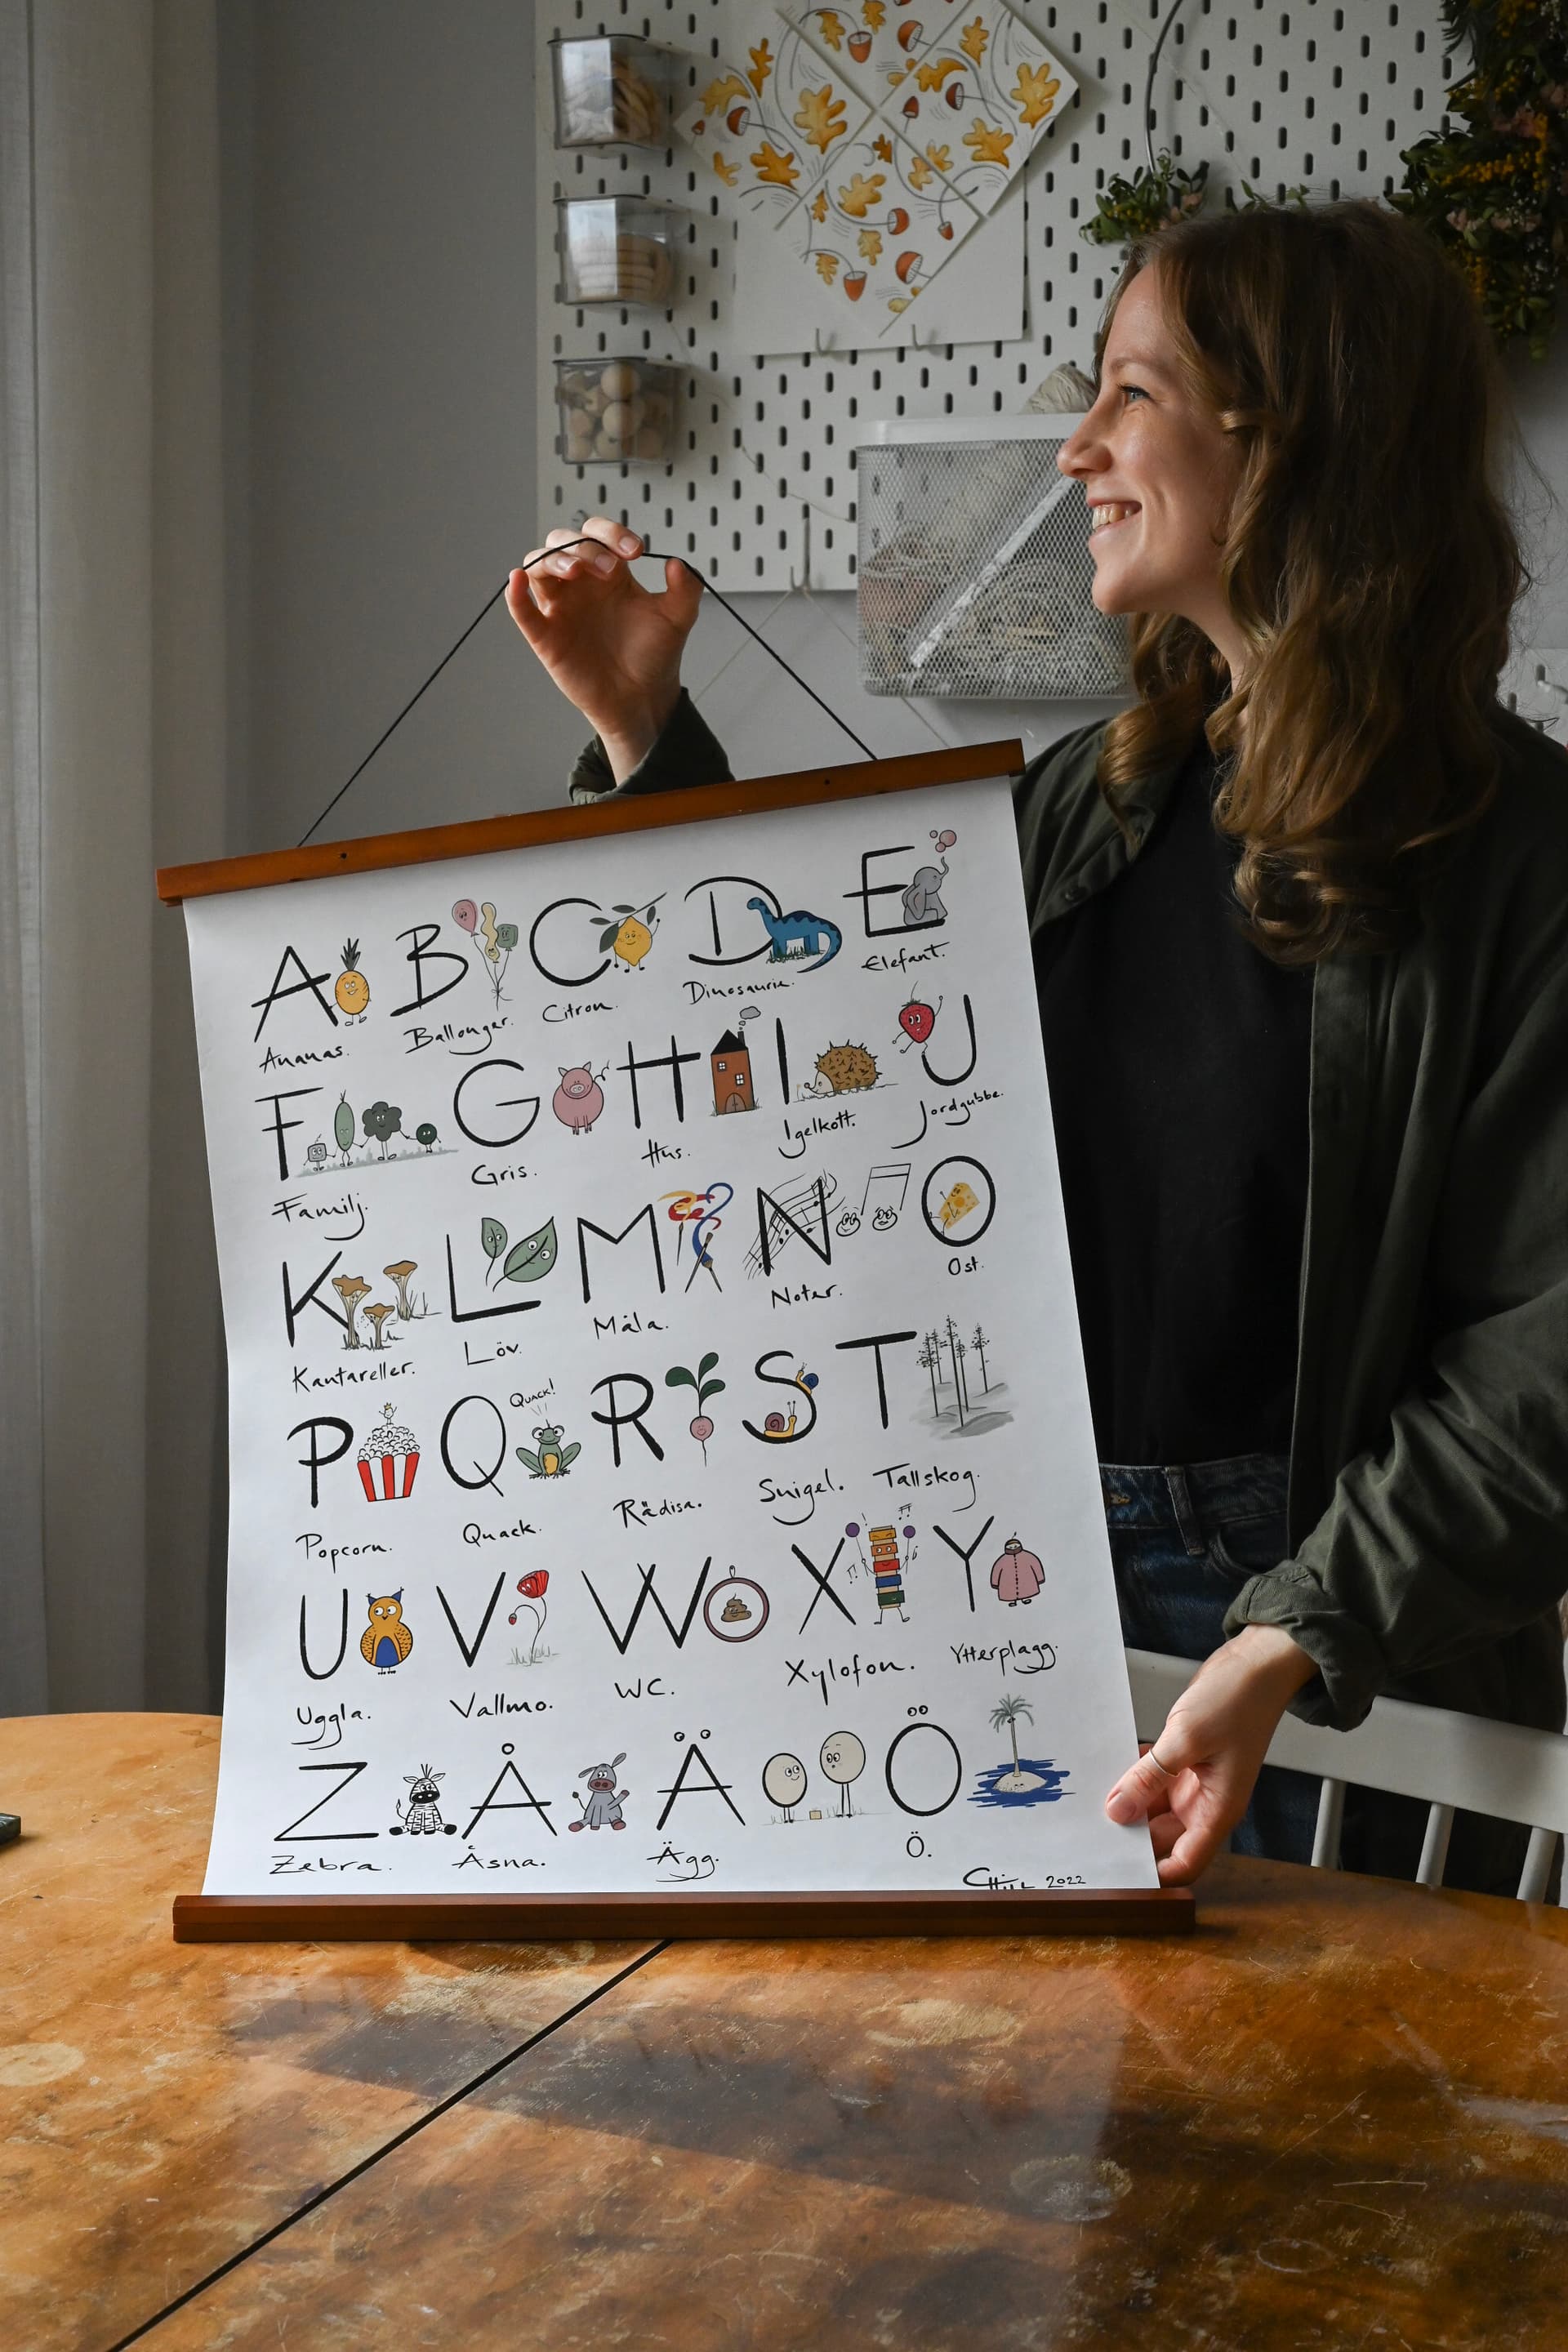 A B C D E
Ananas. Ballonger. Citron. Dinosaurie. Elefant.
F G H I J
Familj. Gris. Hus. Igelkott. Jordgubbe.
K L M N O
Kantareller. Löv. Måla. Noter. Ost.
P Q R S T
QUACK!
Popcorn. Quack. Rädisa. Snigel. Tallskog.
U V W X Y
Uggla. Vallmo. WC. Xylofon. Ytterplagg.
Z Å Ä Ö
Zebra. Åsna. Ägg. Ö.
2022